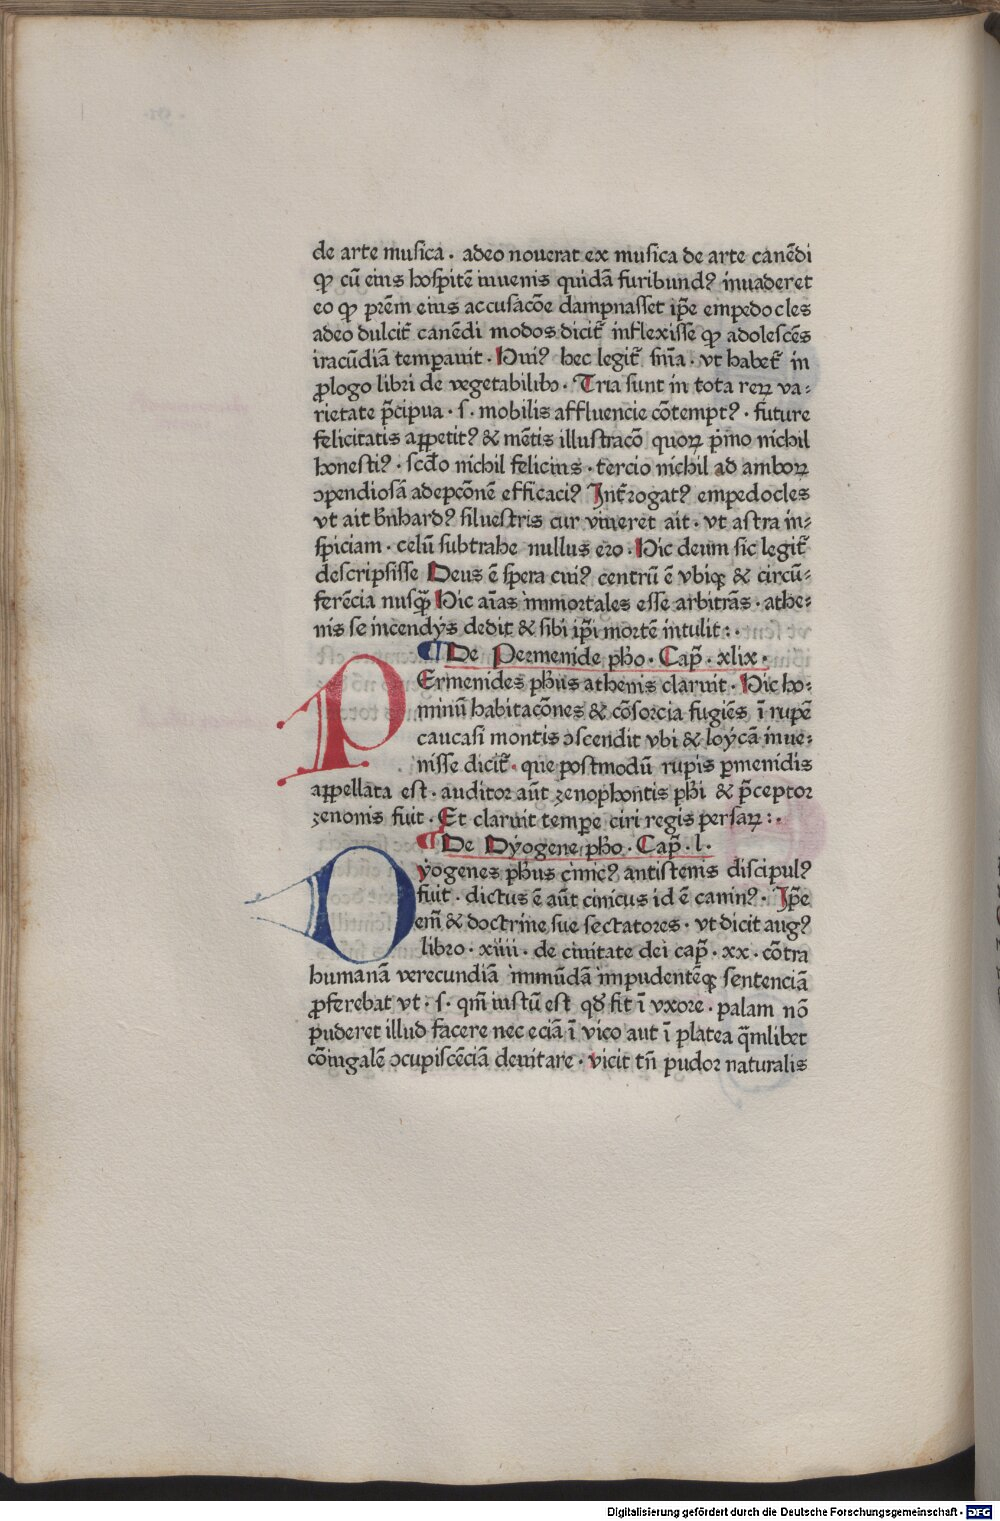 de arte musica . adeo nouerat ex musica de arte canēdi
ꝙ cū eius hospitē iuuenis quidā furibundꝰ inuaderet
eo ꝙ prēm eius accusacōe dampnasset ip̄e empedocles
adeo dulcit̄ canēdi modos dicit̄ inflexisse ꝙ adolescēs
iracūdiā temperauit . Huiꝰ hec legit̄ sn̄ia . vt habet̄ in
ꝓlogo libri de vegetabilibꝫ . Tria sunt in tota reꝝ va⸗
rietate p̄cipua . s . mobilis affluencie cōtemptꝰ . future
felicitatis appetitꝰ & mētis illustracō quoꝝ p̄mo nichil
honestiꝰ . scd̄o nichil felicius . tercio nichil ad amboꝝ
ↄpendiosā adepcōnē efficaciꝰ Int̄rogatꝰ empedocles
vt ait b̄nhardꝰ siluestris cur viueret ait . vt astra in⸗
spiciam . celū subtrahe nullus ero . Hic deum sic legit̄
descripsisse Deus ē spera cuiꝰ centrū ē vbiqꝫ & circū⸗
ferēcia nusꝗ̄ Hic aīas immortales esse arbitrās . athe⸗
nis se incendijs dedit & sibi ip̄i mortē intulit : .
¶ De Permenide pho . Cap̄ . xlix .
PErmenides ph̄us athenis claruit . Hic ho⸗
minū habitacōnes & cōsorcia fugiēs ī rupē
caucasi montis ↄscendit vbi & loycā inue⸗
nisse dicit̄ . que postmodū rupis ꝑmenidis
appellata est . auditor aūt zenophontis ph̄i & p̄ceptor
zenonis fuit . Et claruit tempe ciri regis persaꝝ : .
¶ De Dyogene pho . Cap̄ . l .
DYogenes ph̄us cinicꝰ antistenis discipulꝰ
fuit . dictus ē aūt cinicus id ē caninꝰ . Ip̄e
em̄ & doctrine sue sectatores . vt dicit augꝰ
libro . xiiii . de ciuitate dei cap̄ . xx . cōtra
humanā verecundiā immūdā impudentēqꝫ sentenciā
ꝓferebat vt . s . qm̄ iustū est qd̄ fit ī vxore . palam nō
puderet illud facere nec eciā ī vico aut ī platea ꝗ̄mlibet
cōiugalē ↄcupiscēciā deuitare . vicit tn̄ pudor naturalis
Digitalisierung gefördert durch die Deutsche Forschungsgemeinschaft - DFG